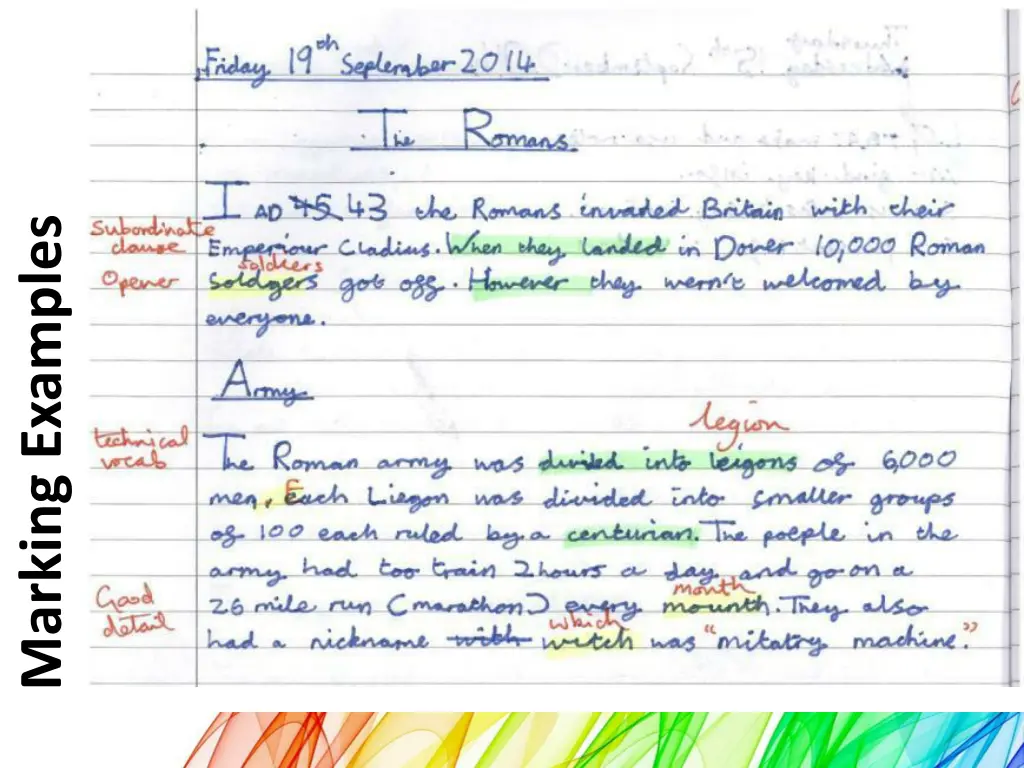 Marking Examples
Friday 19th September 2014
The Romans
I AD 45 43 the Romans invaded Britain with their
Subordinate clause
Emperiour Cladius. When they landed in Dover 10,000 Roman
soldiers
Opener
Soldgers got off. However they wern't welcomed by
everyone.
Army
legion
technical vocab
The Roman army was divided into leigons of 6,000
men. Each Liegon was divided into smaller groups
of 100 each ruled by a centurian. The poeple in the
army had too train 2 hours a day and go on a
month
Good detail
26 mile run (marathon) every mounth. They also
which
had a nickname with witch was "mitatry machine."